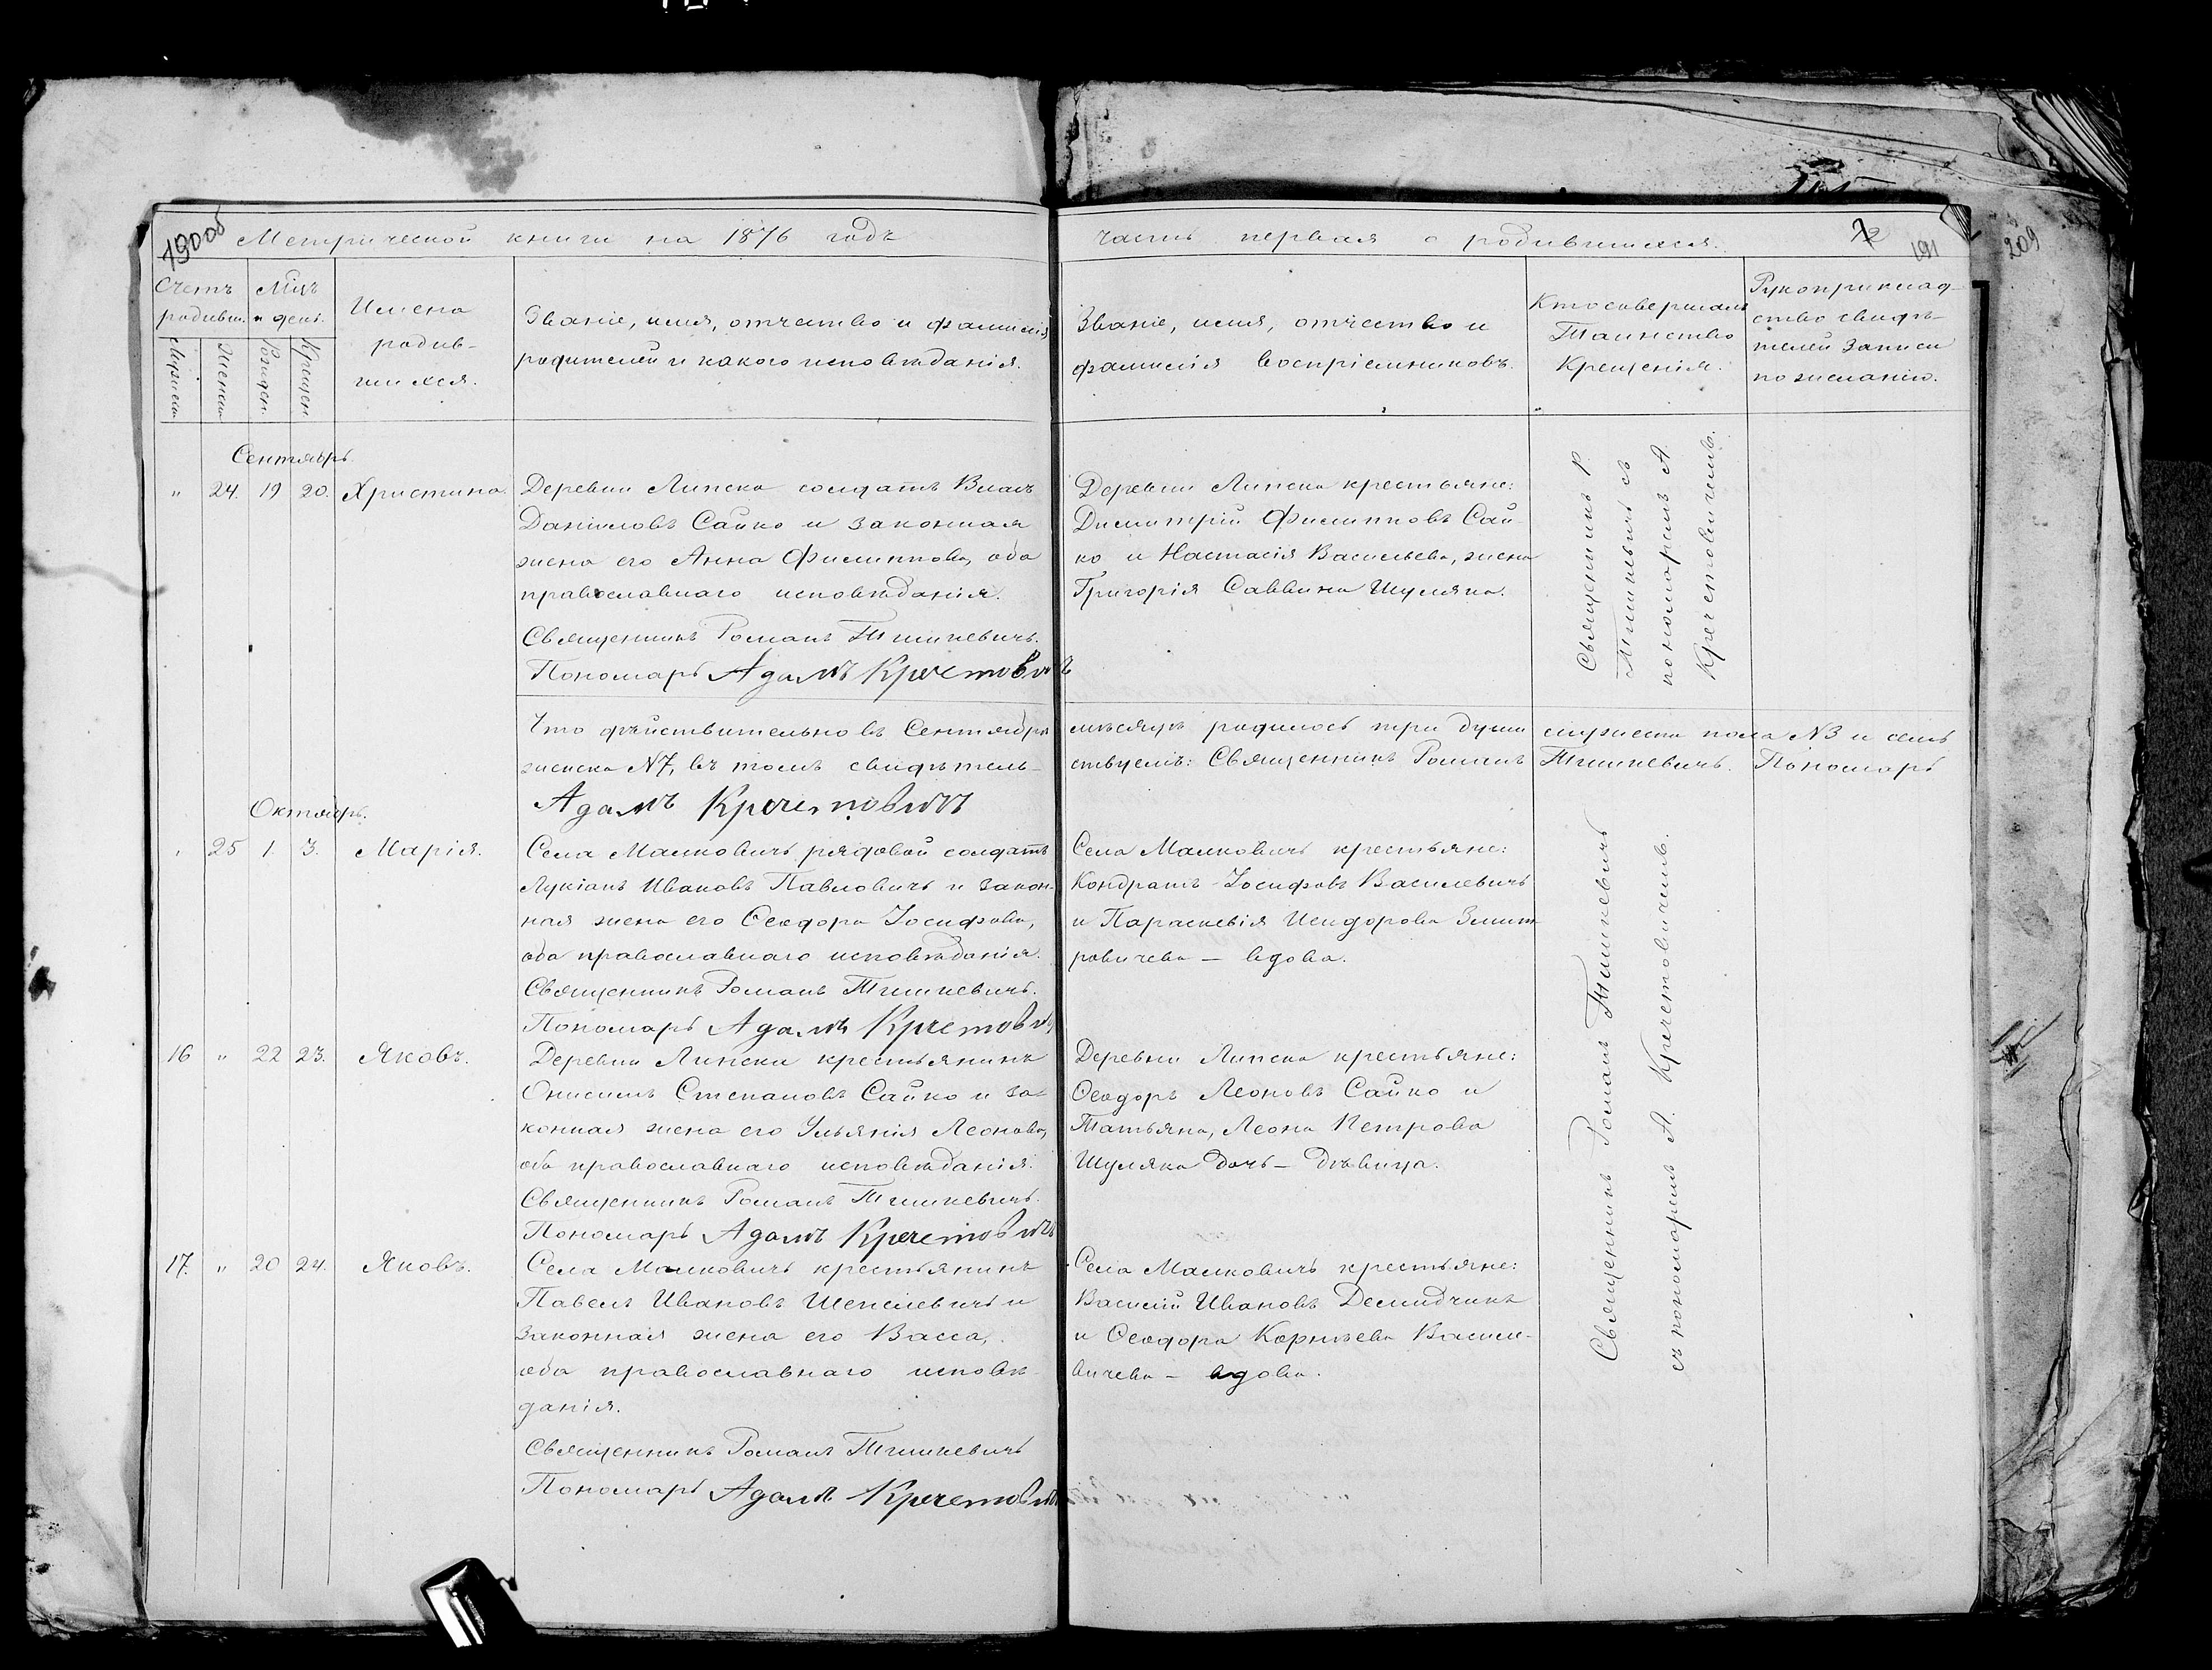 190об
Метрической книги на 1876 годъ
часть первая о родившихся.
72
191
209
Счетъ родивш.
Мцъ и день.
Мужеска
Женска
Рожден.
Крещен.
Имена
родив-
шихся.
Званіе, имя, отчество и фамилія
родителей и какого исповѣданія.
Званіе, имя, отчество и
фамилія воспріемниковъ.
Кто совершалъ
Таинство
Крещенія.
Рукоприклад-
ство свидѣ-
телей записи
по желанію.
Сентябрь.
" 24. 19 20. Христина.
Деревни Липска солдатъ Власъ
Даніиловъ Сайко и законная
жена его Анна Филиппова, оба
православнаго исповѣданія.
Священникъ Романъ Тишкевичъ.
Пономарь Адамъ Кречетовичъ
Деревни Липска крестьяне:
Димитрій Филипповъ Сай-
ко и Настасія Васильева, жена
Григорія Саввина Шуляка.
Священникъ Р.
Тишкевичъ съ
пономаремъ А.
Кречетовичемъ.
Что дѣйствительно въ Сентябрѣ мѣсяцѣ родилось три души мужеска пола №3 и семь
женска №7, въ томъ свидѣтель- ствуемъ: Священникъ Романъ Тишкевичъ. Пономарь
Адамъ Кречетовичъ
Октябрь.
" 25 1. 3. Марія.
Села Малковичъ рядовой солдатъ
Лукіанъ Ивановъ Павловичъ и закон-
ная жена его Ѳеодора Іосифова,
оба православнаго исповѣданія.
Священникъ Романъ Тишкевичъ.
Пономарь Адамъ Кречетовичъ
Села Малковичъ крестьяне:
Кондратъ Іосифовъ Василевичъ
и Параскевія Исидорова Змит-
ровичева — вдова.
16 " 22 23. Яковъ.
Деревни Липска крестьянинъ
Онисимъ Степановъ Сайко и за-
конная жена его Ульянія Леонова,
оба православнаго исповѣданія.
Священникъ Романъ Тишкевичъ.
Пономарь Адамъ Кречетовичъ
Деревни Липска крестьяне:
Ѳеодоръ Леоновъ Сайко и
Татьяна, Леона Петрова
Шуляка дочь — дѣвица.
17. " 20 24. Яковъ.
Села Малковичъ крестьянинъ
Павелъ Ивановъ Шепелевичъ и
законная жена его Васса,
оба православнаго исповѣ-
данія.
Священникъ Романъ Тишкевичъ
Пономарь Адамъ Кречетовичъ
Села Малковичъ крестьяне:
Василій Ивановъ Демидчикъ
и Ѳеодора Корнѣева Васили-
вичева — вдова.
Священникъ Романъ Тишкевичъ
съ пономаремъ А. Кречетовичемъ.